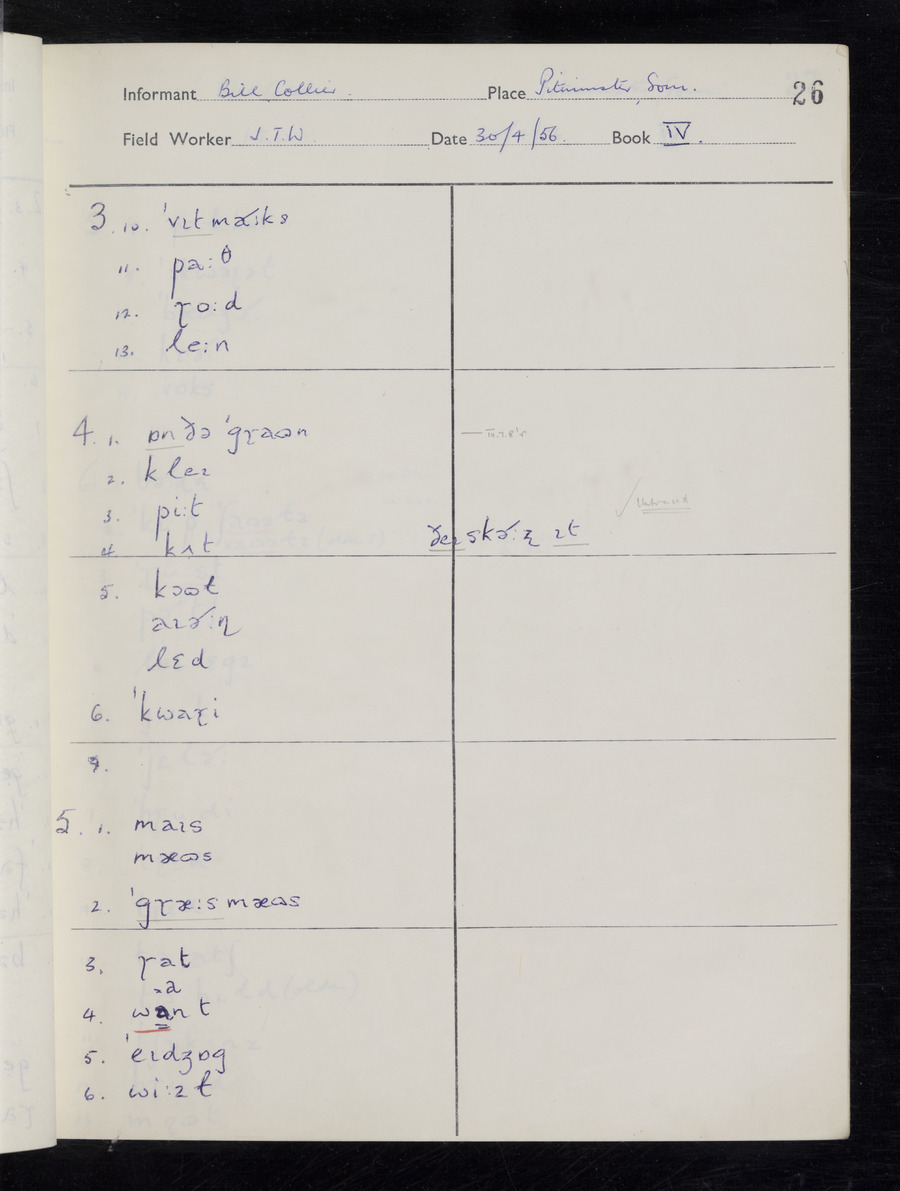 Informant Bill Collier. Place Pitminster, Som. 26
Field Worker J.T.W Date 30/4/56. Book IV.
3. 10. ˈvɪtmɚːks
11. paːθ
12. ɽoːd
13. leːn
4. 1. ɒn ðə ˈgɽaɷn
2. kleɪ
3. piːt
4. kʌt ðeɪ skɚːʐ ɪt
5. kɔɷt
aɪɚːɳ
lɛd
6. ˈkwaɽi
7.
5. 1. maɪs
mæɷs
2. ˈgɽæːs mæɷs
3. ɽat
4. want
5. ˈeɪdʒɒg
6. wiːzt